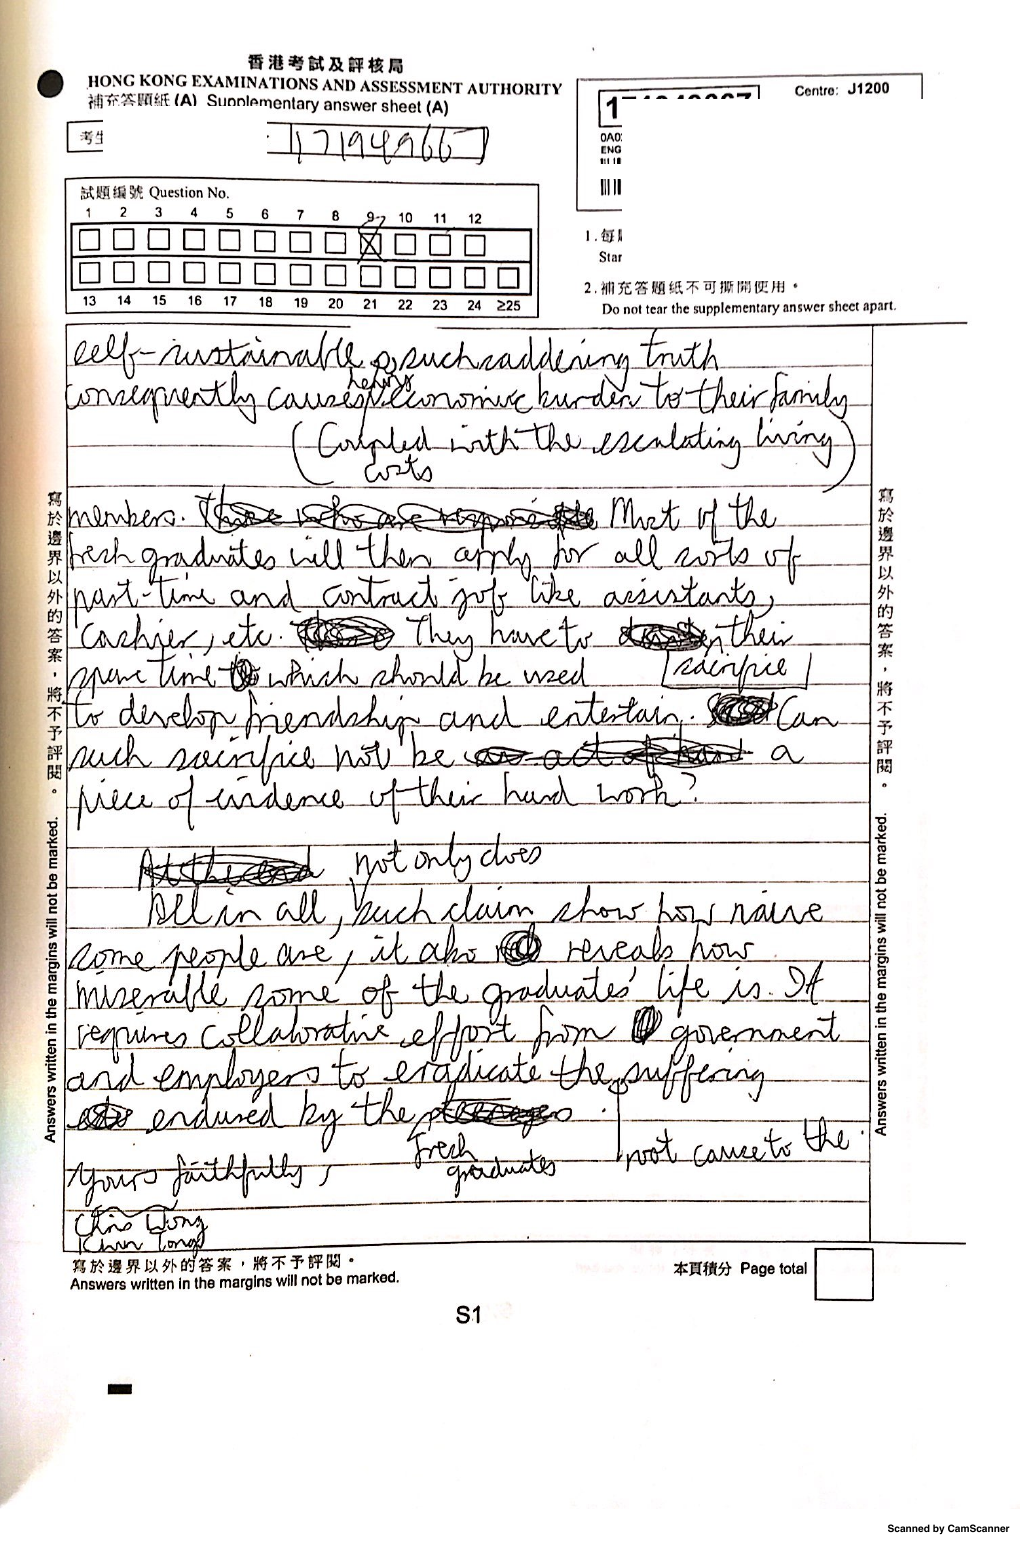 香港考試及評核局
HONG KONG EXAMINATIONS AND ASSESSMENT AUTHORITY
補充答題紙 (A) Supplementary answer sheet (A)
Centre: J1200
考生
17194966
0A0
ENG
試題編號 Question No.
1 2 3 4 5 6 7 8 9 10 11 12
13 14 15 16 17 18 19 20 21 22 23 24 ≥25
1. 每
Star
2. 補充答題紙不可撕開使用。
Do not tear the supplementary answer sheet apart.
self-sustainable, such saddening truth
consequently causes heavy economic burden to their family
(Coupled with the escalating living
costs)
members. Most of the
fresh graduates will then apply for all sorts of
part-time and contract job like assistants,
cashier, etc. They have to sacrifice their
spare time which should be used
to develop friendship and entertain. Can
such sacrifice not be a
piece of evidence of their hard work?
not only does
All in all, such claim show how naive
some people are, it also reveals how
miserable some of the graduates' life is. It
requires collaborative effort from government
and employers to eradicate the suffering
endured by the .
root cause to the
fresh
graduates
Yours faithfully,
Chris Wong
寫於邊界以外的答案，將不予評閱。
Answers written in the margins will not be marked.
寫於邊界以外的答案，將不予評閱。
Answers written in the margins will not be marked.
寫於邊界以外的答案，將不予評閱。
Answers written in the margins will not be marked.
本頁積分 Page total
S1
Scanned by CamScanner